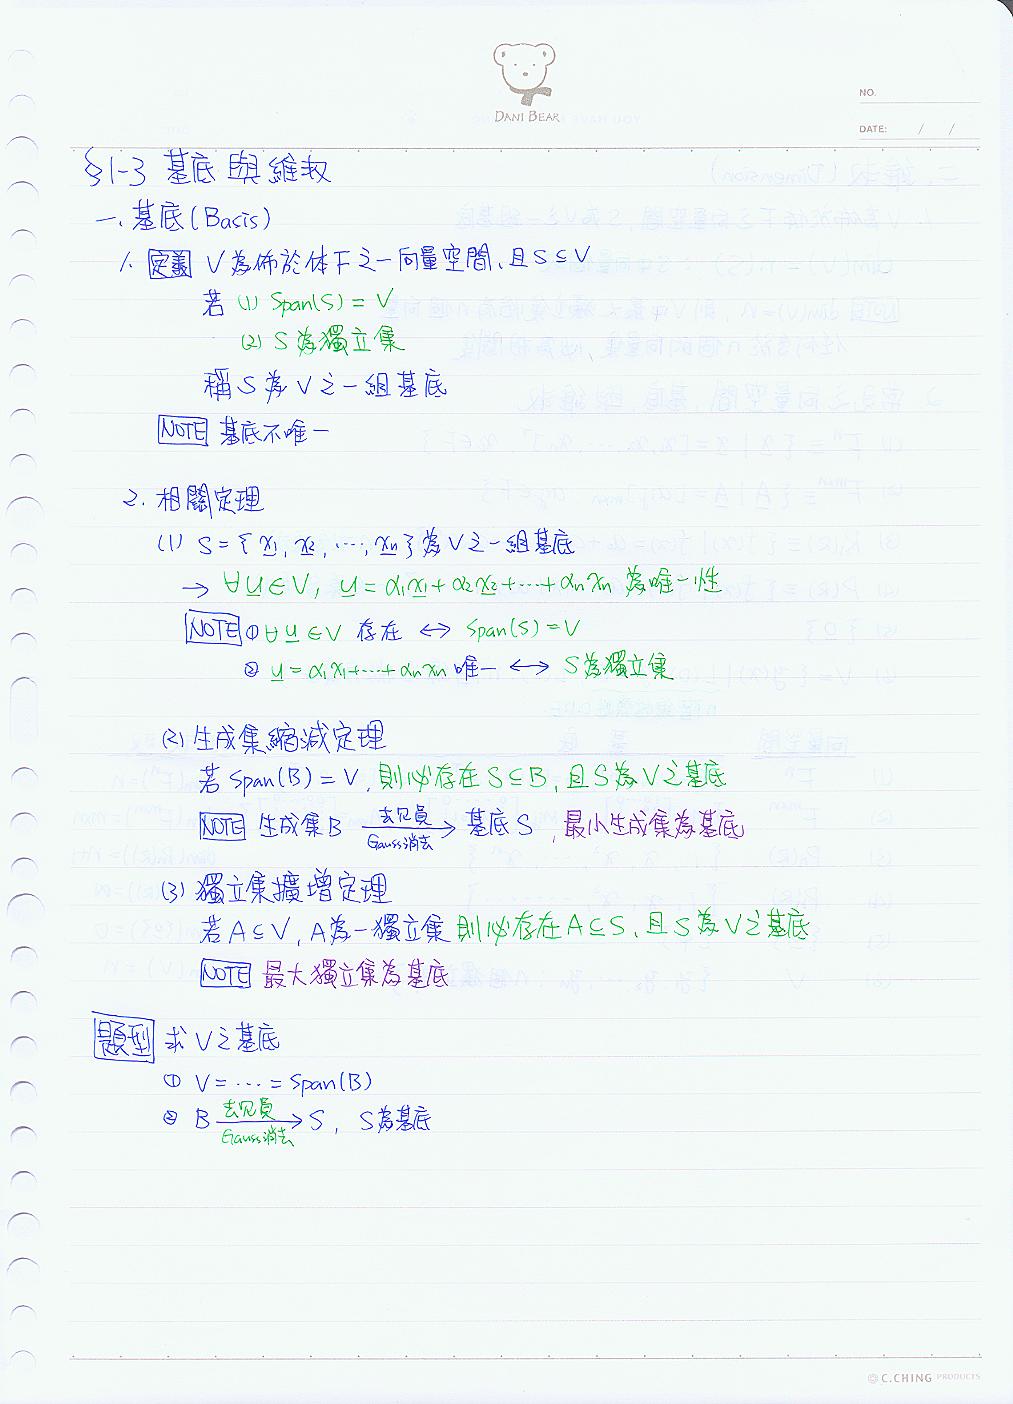 DANI BEAR
NO.
DATE: / /
§1-3 基底與維枚
一、基底(Basis)
1. 定義 V為佈於体F之一向量空間、且S⊆V
若 (1) Span(S) = V
(2) S為獨立集
稱S為V之一組基底
NOTE 基底不唯一
2. 相關定理
(1) S={x1, x2, ..., xn}為V之一組基底
→ ∀u∈V, u = α1x1+α2x2+...+αnxn 為唯一性
NOTE ① ∀u∈V 存在 ↔ span(S)=V
② u=α1x1+...+αnxn 唯一 ↔ S為獨立集
(2) 生成集縮減定理
若span(B)=V, 則必存在S⊆B, 且S為V之基底
NOTE 生成集B 去冗員 Gauss消去 → 基底S, 最小生成集為基底
(3) 獨立集擴增定理
若A⊆V, A為一獨立集 則必存在A⊆S, 且S為V之基底
NOTE 最大獨立集為基底
題型 求V之基底
① V=...=Span(B)
② B 去冗員 Gauss消去 → S, S為基底
C.CHING PRODUCTS